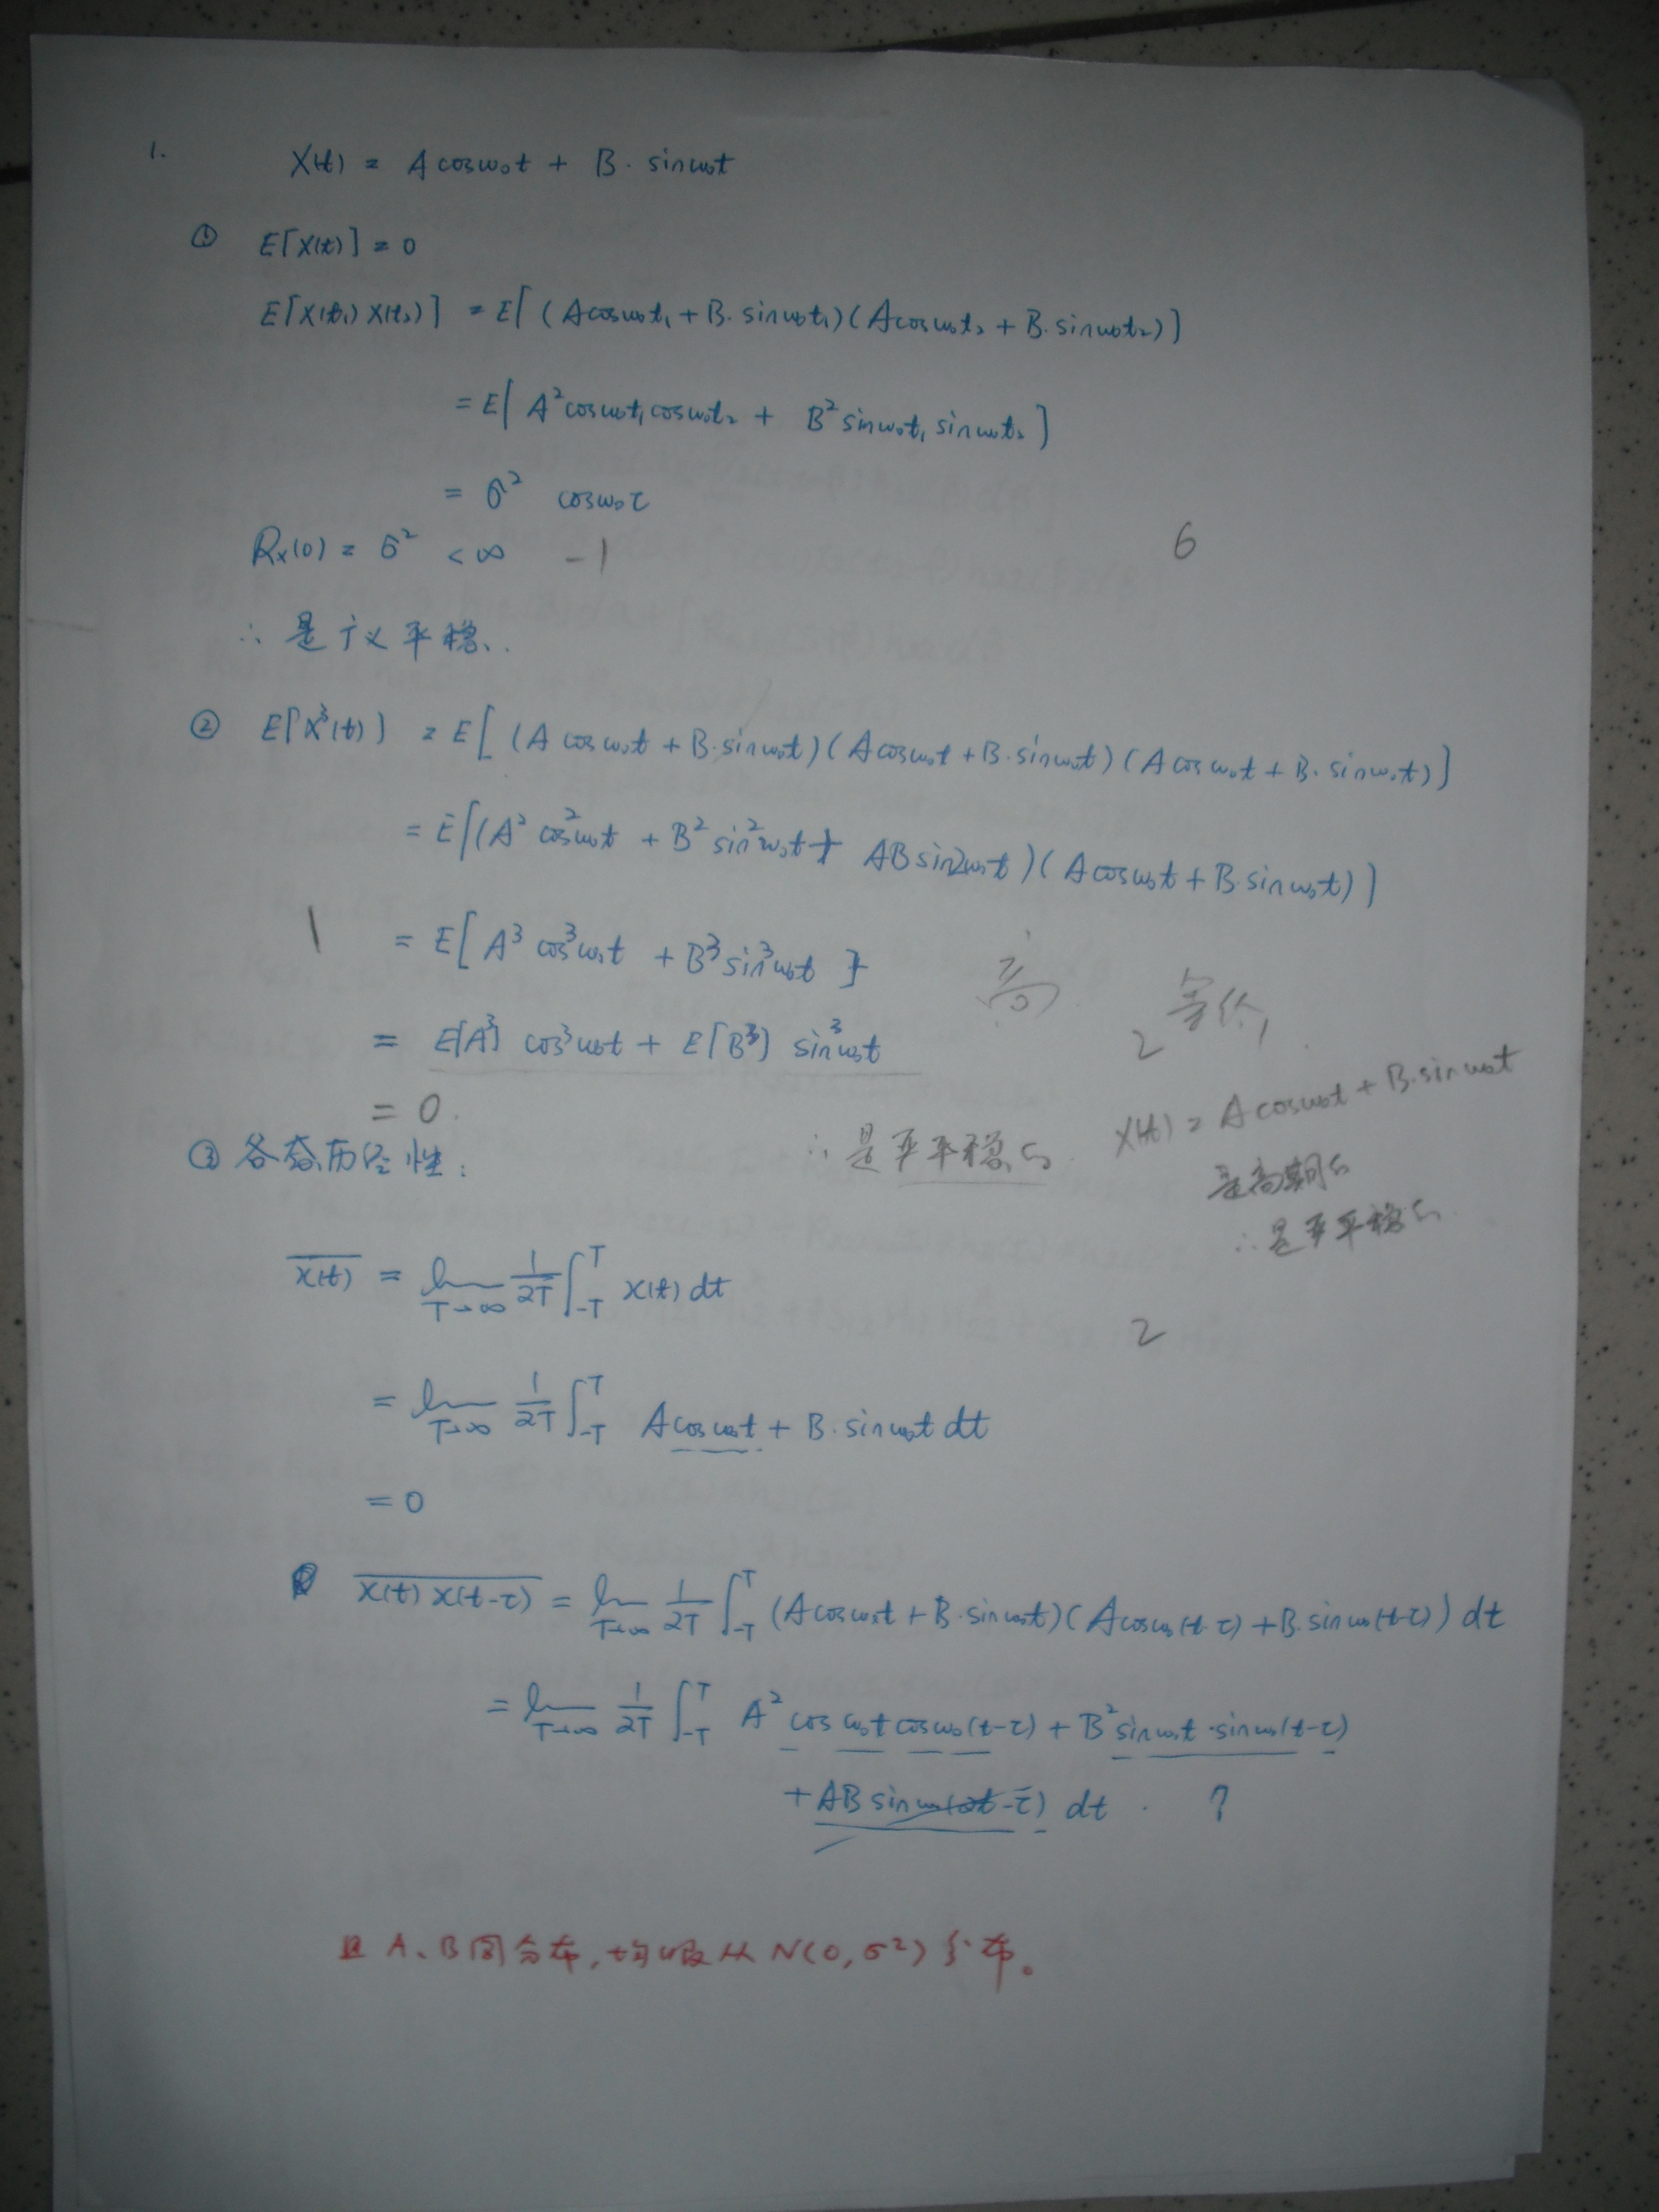 1. X(t) = A cosω₀t + B · sinω₀t
① E[X(t)] = 0
E[X(t₁) X(t₂)] = E[(A cosω₀t₁ + B · sinω₀t₁)(A cosω₀t₂ + B · sinω₀t₂)]
= E[A² cosω₀t₁ cosω₀t₂ + B² sinω₀t₁ sinω₀t₂]
= σ² cosω₀τ
Rx(0) = σ² < ∞ -1
6
∴ 是广义平稳.
② E[X³(t)] = E[(A cosω₀t + B · sinω₀t)(A cosω₀t + B · sinω₀t)(A cosω₀t + B · sinω₀t)]
= E[(A² cos²ω₀t + B² sin²ω₀t + AB sin2ω₀t)(A cosω₀t + B · sinω₀t)]
1 = E[A³ cos³ω₀t + B³ sin³ω₀t]
高
2 等价,
= E[A³] cos³ω₀t + E[B³] sin³ω₀t
= 0.
∴ 是严平稳的
X(t) = A cosω₀t + B · sinω₀t
是高斯的
∴ 是严平稳的
③ 各态历经性:
x(t) = lim T→∞ 1/2T ∫_{-T}^{T} x(t) dt
2
= lim T→∞ 1/2T ∫_{-T}^{T} A cosω₀t + B · sinω₀t dt
= 0
x(t) x(t-τ) = lim T→∞ 1/2T ∫_{-T}^{T} (A cosω₀t + B · sinω₀t)(A cosω₀(t-τ) + B · sinω₀(t-τ)) dt
= lim T→∞ 1/2T ∫_{-T}^{T} A² cosω₀t cosω₀(t-τ) + B² sinω₀t · sinω₀(t-τ)
+ AB sinω₀(2t-τ) dt . ?
且 A、B同分布,均服从 N(0,σ²) 分布。